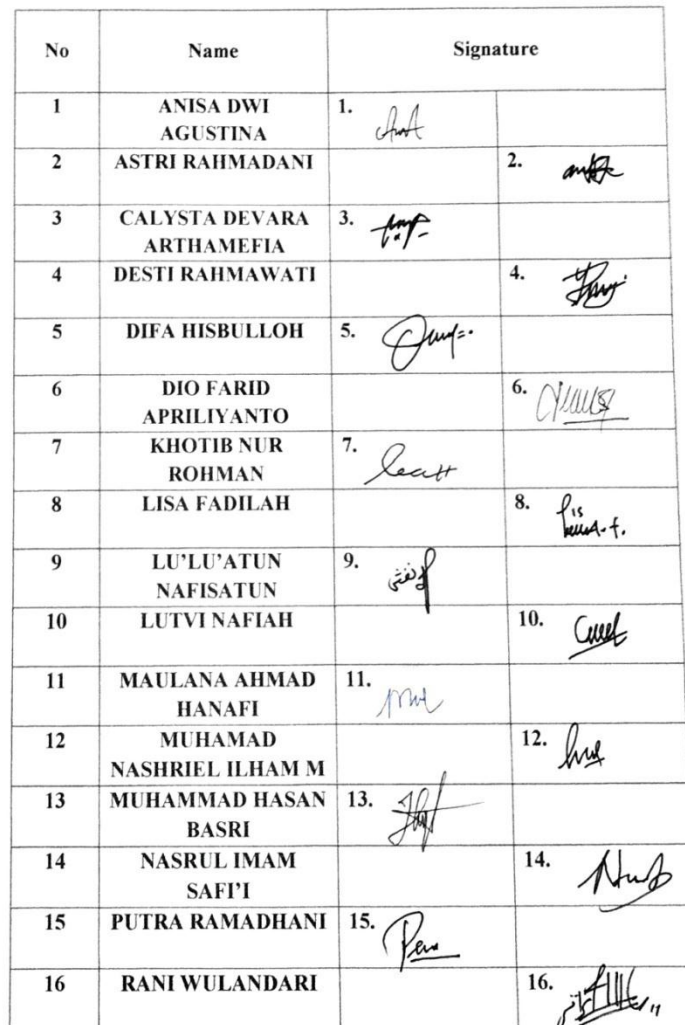 No Name Signature
1 ANISA DWI 1.
AGUSTINA
2 ASTRI RAHMADANI 2.
3 CALYSTA DEVARA 3.
ARTHAMEFIA
4 DESTI RAHMAWATI 4.
5 DIFA HISBULLOH 5.
6 DIO FARID 6.
APRILIYANTO
7 KHOTIB NUR 7.
ROHMAN
8 LISA FADILAH 8.
9 LU'LU'ATUN 9.
NAFISATUN
10 LUTVI NAFIAH 10.
11 MAULANA AHMAD 11.
HANAFI
12 MUHAMAD 12.
NASHRIEL ILHAM M
13 MUHAMMAD HASAN 13.
BASRI
14 NASRUL IMAM 14.
SAFI'I
15 PUTRA RAMADHANI 15.
16 RANI WULANDARI 16.